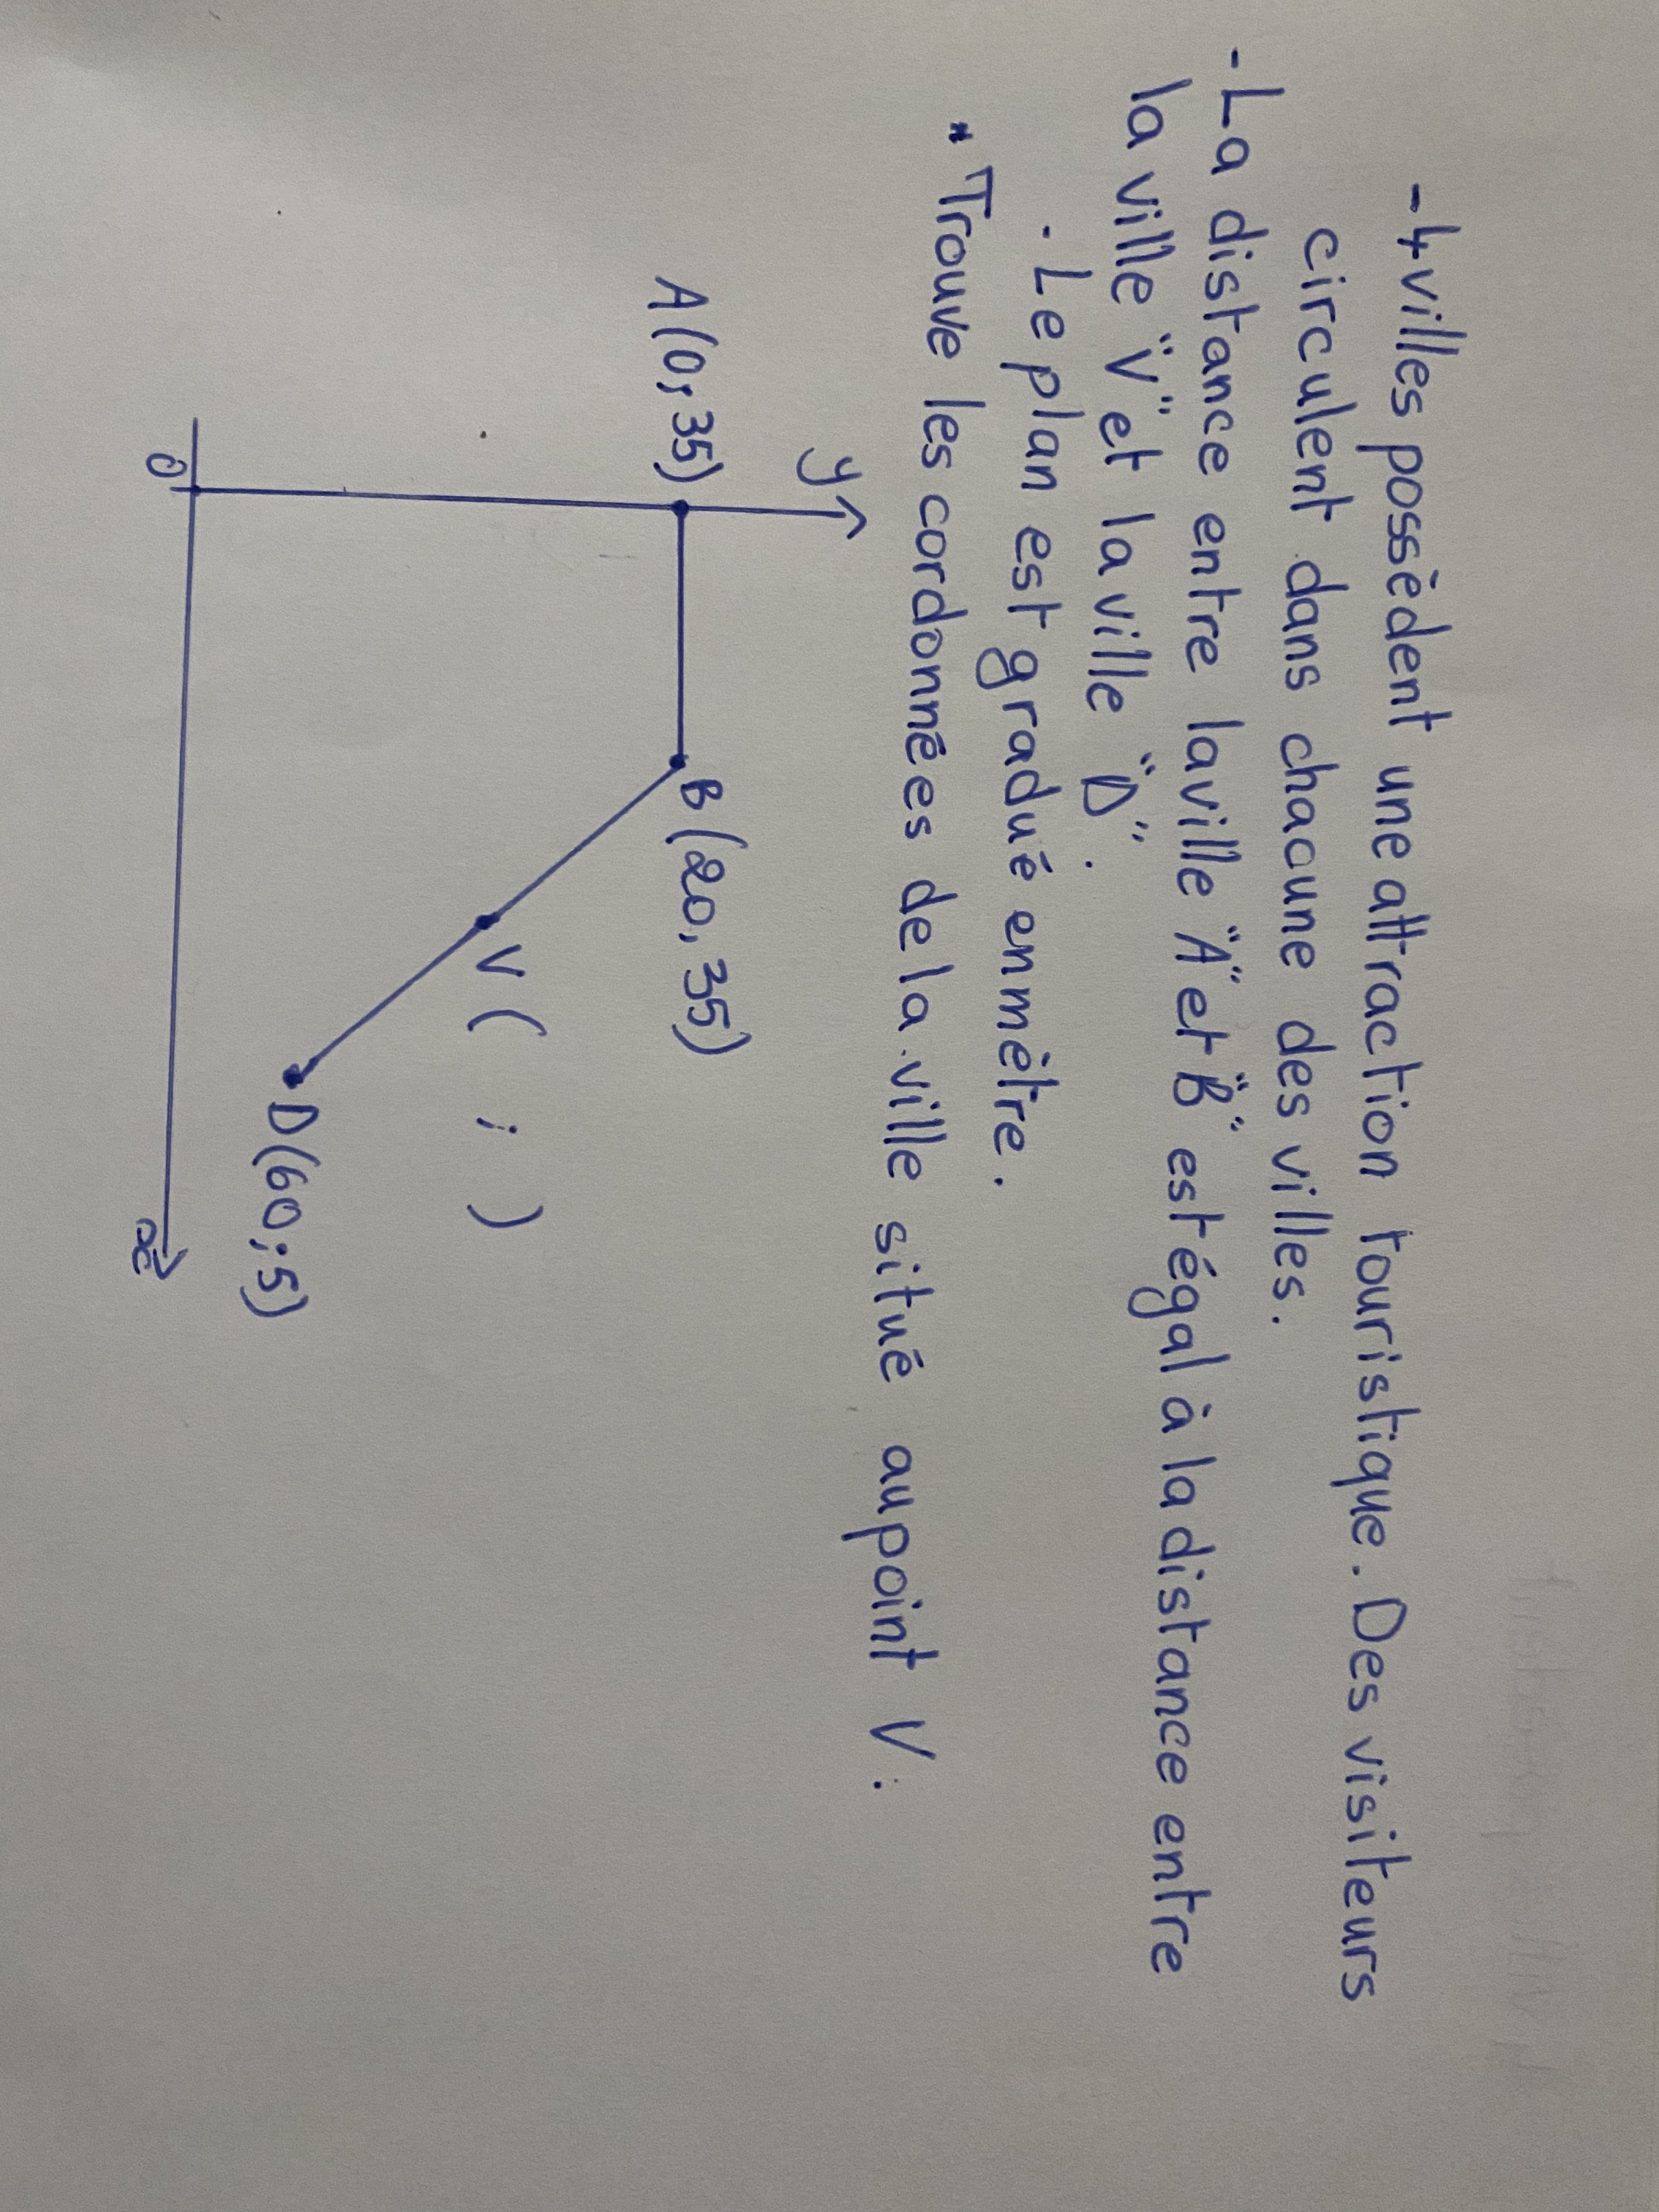 - 4 villes possèdent une attraction touristique. Des visiteurs
circulent dans chacune des villes.
- La distance entre la ville "A" et "B" est égal à la distance entre
la ville "V" et la ville "D".
- Le plan est gradué en mètre.
* Trouve les cordonnées de la ville situé au point V.
y
A(0,35)
B(20,35)
V( ; )
D(60;5)
0
x